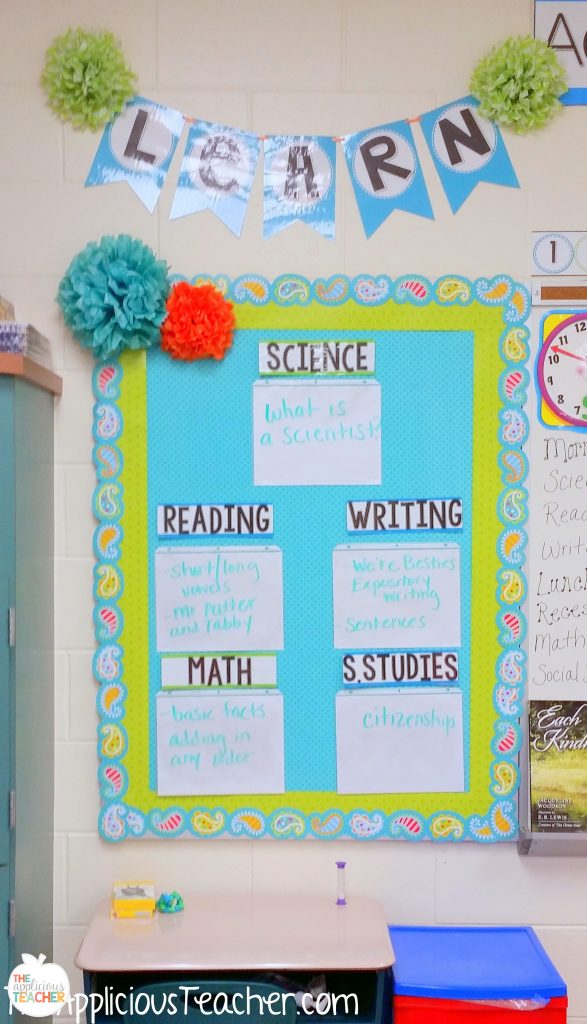 LEARN
SCIENCE
What is
a scientist?
READING
WRITING
- short/long
vowels
- Mr. Putter
and Tabby
- We're Besties
Expository
writing
- Sentences
MATH
S.STUDIES
- basic facts
adding in
any order
citizenship
1
11
12
10
9
8
7
Lunch
Math
Social
Each
JACQUELINE
WOODSON
E. B. LEWIS
THE
applicious
TEACHER
AppliciousTeacher.com